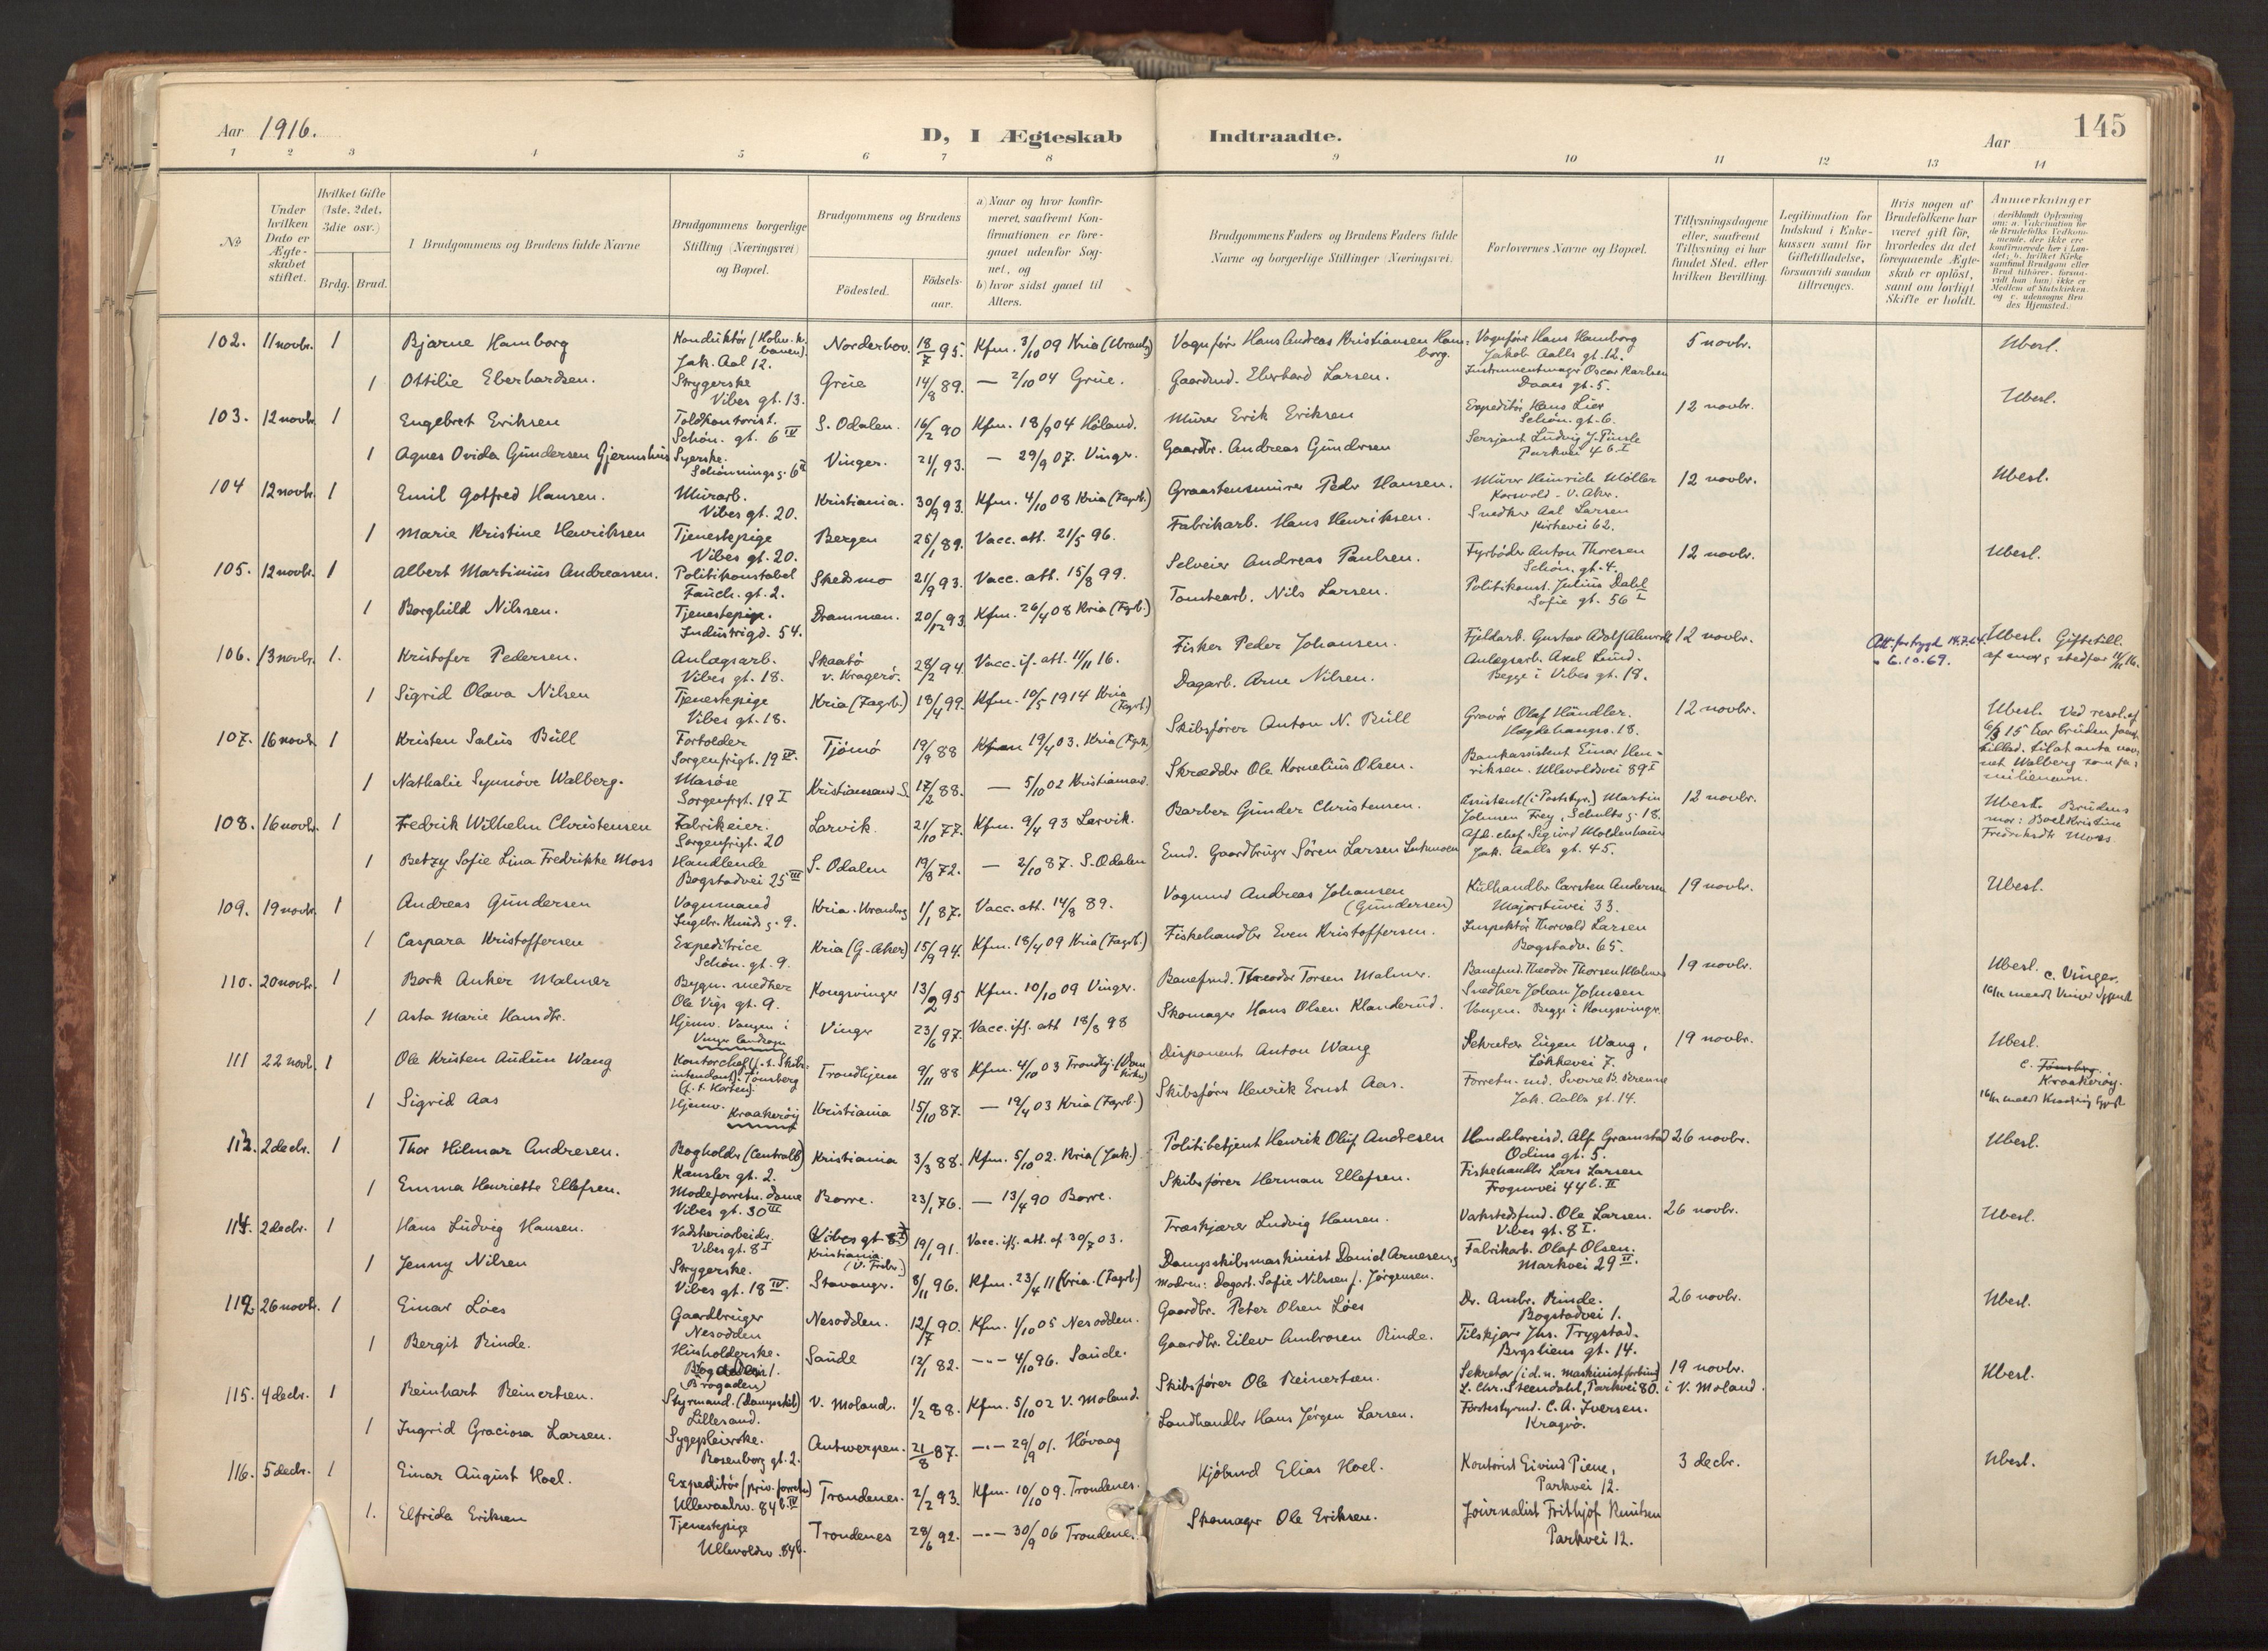 Aar 1916.
D, I Ægteskab Indtraadte.
Aar
145
1 2 3 4 5 6 7 8 9 10 11 12 13 14
№
Under hvilken Dato er Ægteskabet stiftet.
Hvilket Gifte (1ste, 2det, 3die osv.)
Brdg. Brud.
I Brudgommens og Brudens fulde Navne
Brudgommens borgerlige Stilling (Næringsvei) og Bopæl.
Brudgommens og Brudens
Fødested.
Fødsels-aar.
a) Naar og hvor konfirmeret, saafremt Konfirmationen er foregaaet udenfor Sognet, og
b) hvor sidst gaaet til Alters.
Brudgommens Faders og Brudens Faders fulde Navne og borgerlige Stillinger (Næringsvei)
Forlovernes Navne og Bopæl.
Tillysningsdagene eller, saafremt Tillysning ei har fundet Sted, efter hvilken Bevilling.
Legitimation for Indskud i Enkekassen samt for Giftetilladelse, forsaavidt saadan tiltrænges.
Hvis nogen af Brudefolkene har været gift før, hvorledes da det foregaaende Ægteskab er opløst, samt om lovligt Skifte er holdt.
Anmærkninger
(deriblandt Oplysning om: a. Vakcination for de Brudefolks Vedkommende, der ikke ere konfirmerede her i Landet; b. hvilket Kirkesamfund Brudgom eller Brud tilhører, forsaavidt han (hun) ikke er Medlem af Statskirken, og c. udensogns Brudes Hjemsted.)
102. 11 novbr. 1 Bjarne Hamborg Konduktør (Holm.k.banen) Jak. Aal 12. Norderhov. 18/7 95. Kfm. 3/10 09 Kria (Uranb.) Vognfører Hans Andreas Kristiansen Hamborg. Vognfører Hans Hamborg Jakob Aalls gt. 12. 5 novbr. Ubesl.
1 Ottilie Eberhardsen. Strygerske Vibes gt. 13. Grue 14/8 89. — 2/10 04 Grue. Gaardmd. Eberhard Larsen. Instrumentmager Oscar Karlsen Daaes gt. 5.
103. 12 novbr. 1 Engebret Eriksen Toldkontorist. Schøn. gt. 6 IV S. Odalen. 16/2 90 Kfm. 18/9 04 Høland. Murer Erik Eriksen Expeditør Hans Lier Schøn. gt. 6. 12 novbr. Ubesl.
1 Agnes Ovida Gundersen Gjermshus Syerske. Schønnings g. 6 Vinger. 21/1 93. — 29/9 07. Vinger. Gaardbr. Andreas Gundersen Sersjant Ludvig J. Parkvei 4 b I
104 12 novbr. 1 Emil Gotfred Hansen. Murarb. Vibes gt. 20. Kristiania. 30/9 93. Kfm. 4/10 08 Kria (Fagrb.) Graastensmurer Peder Hansen. Murer Heinrich Möller Korsvold - V. Aker. 12 novbr. Ubesl.
1 Marie Kristine Henriksen Tjenestepige Vibes gt. 20. Bergen 25/1 89. Vacc. att. 21/5 96. Fabrikarb. Hans Henriksen. Snedker Aal Larsen Kirkevei 62.
105. 12 novbr. 1 Albert Martinius Andreassen. Politikonstabel Fauch. gt. 2. Skedsmo 21/9 93. Vacc. att. 15/8 99. Selveier Andreas Paulsen. Fyrbøder Anton Thoresen Schøn. gt. 4. 12 novbr. Ubesl.
1 Borghild Nilssen. Tjenestepige. Industrigd. 54. Drammen. 20/12 93. Kfm. 26/4 08 Kria (Fagrb.) Tomtearb. Nils Larsen. Politikonst. Julius Dahl Sofie gt. 56 I
106. 13 novbr. 1. Kristofer Pedersen. Anlægsarb. Vibes gt. 18. Skaatø v. Kragerø. 28/2 94. Vacc. if. att. 11/11 16. Fisker Peder Johansen. Fjeldarb. Gustav Adolf 12 novbr. Att. 6.10.69. Ubesl. Giftetill. af mor, stedfar
1 Sigrid Olava Nilsen Tjenestepige Vibes gt. 18. Kria (Fagrb.) 18/4 99. Kfm. 10/5 1914 Kria (Fagrb.) Dagarb. Arne Nilsen. Anlægsarb. Axel Lund. Begge i Vibes gt. 18.
107. 16 novbr. 1 Kristen Salius Bull Forvolder Sorgenfrigt. 19 IV. Tjømø 19/9 88 Kfm 19/4 03. Kria (Fgrb.) Skibsfører Anton N. Bull Gravør Olaf Händler. Hægdehaugsv. 18. 12 novbr. Ubesl. Ved resol. af 6/3 15 har bruden faaet tillad. til at anta navnet Walberg som familienavn.
1 Nathalie Synnöve Walberg. Masøse Sorgenfrgt. 19 I Kristiansand S. 17/2 88. — 5/10 02 Kristiansand. Skrædder Ole Kornelius Olsen. Bankassistent Einar Henriksen. Ullevoldsvei 89 I
108. 16 novbr. 1 Fredrik Wilhelm Christensen Fabrikeier. Sorgenfrigt. 20 Larvik. 21/10 77. Kfm. 9/4 93 Larvik. Barber Gunder Christensen. Assistent (i Poststyr.) Martin Johnsen Frey, Schultz g. 18. 12 novbr. Ubesl. Brudens mor: Boel Kristine Fredriksdtr Moss
1 Betzy Sofie Lina Fredrikke Moss Handlende Bogstadvei 25 III S. Odalen 19/8 72. — 2/10 87. S. Odalen Emd. Gaardbruger Søren Larsen Afd. chef Sigurd Moldenhauer Jak. Aalls gt. 45.
109. 19 novbr. 1 Andreas Gundersen Vognmand Ingebr. Knuds g. 9. Kria. Uranbrg 1/1 87. Vacc. att. 14/8 89. Vognmd Andreas Johansen (Gundersen) Kulhandler Carsten Andersen Majorstuvei 33. 19 novbr. Ubesl.
1 Caspara Kristoffersen Expeditrice Schøn. gt. 9. Kria (G. Aker) 15/9 94. Kfm. 18/4 09 Kria (Fagrb.) Fiskehandler Even Kristoffersen. Inspektør Thorvald Larsen Bogstadv. 65.
110. 20 novbr. 1 Bork Anker Malmer Bygn. snedker Ole Vigs gt. 9. Kongsvinger 13/2 95 Kfm. 10/10 09 Vinger. Banefmd. Theodor Torsen Malmer. Banefmd. Theodor Thorsen Malmer 19 novbr. Ubesl. c. Vinger. 16/11 meddt Vinger Sgpræst
1 Asta Marie Hansdtr. Hjemv. Vangen i Vinger landsogn Vinger 23/6 97. Vacc. iff. att 18/8 98 Skomager Hans Olsen Klanderud. Snedker Johan Johnsen Vangen. Begge i Kongsvinger.
111 22 novbr. 1 Ole Kristen Audun Wang Kontorchef (j. t. Skibsintendant): Tønsberg (f. t. Horten). Trondhjem 9/11 88 Kfm. 4/10 03 Trondhj. (Domkirken) Disponent Anton Wang Sekretær Eugen Wang, Løkkevei 7. 19 novbr. Ubesl. c. Tønsberg. Kraakerøy.
1 Sigrid Aas Hjemv. Kraakerøy Kristiania 15/10 87. — 19/4 03 Kria (Fagrb.) Skibsfører Henrik Ernst Aas. Forretn. md. Sverre B. Jak. Aalls gt. 14. 16/11 meddt
113. 2 decbr. 1 Thor Hilmar Andresen. Bogholder (Centralb) Kansler gt. 2. Kristiania 3/3 88. Kfm. 5/10 02. Kria (Jak.) Politibetjent Henrik Oluf Andresen Handelsreisd. Alf Gramstad Odins gt. 5. 26 novbr. Ubesl.
1 Emma Henriette Ellefsen. Modeforretn. dame Vibes gt. 30 III Borre. 23/1 76. — 13/4 90 Borre. Skibsfører Herman Ellefsen. Fiskehandler Lars Larsen Frognervei 44 b. II
114. 2 decbr. 1 Hans Ludvig Hansen. Vadskeriarbeider. Vibes gt. 8 I (Vibes gt 8 I) Kristiania (V. Frbr.) 19/1 91. Vacc. iff. att. af 30/7 03. Træskjærer Ludvig Hansen. Værkstedsfmd. Ole Larsen. Vibes gt. 8 I. 26 novbr. Ubesl.
1 Jenny Nilsen Strygerske. Vibes gt. 18 IV. Stavanger. 8/11 96. Kfm. 23/4 11 (Kria. (Fagrb.) Dampskibsmaskinist Daniel Arnesen, Modren: Dagarb. Sofie Nilssen f. Jørgensen. Fabrikarb. Olaf Olsen. Markvei 29 II.
112. 26 novbr. 1 Einar Löes Gaardbruger Nesodden Nesodden. 12/7 90. Kfm. 1/10 05 Nesodden. Gaardbr. Peter Olsen Löes Dr. Ambr. Rinde. Bogstadvei 1. 26 novbr. Ubesl.
1 Bergit Rinde. Husholderske. Bogstadvei 1. (Brogaden) Saude 12/1 82. —"— 4/10 96. Saude. Gaardbr. Eilev Ambrosen Rinde. Tilskjærer Jhs. Trygstad. Bergsliens gt. 14.
115. 4 decbr. 1 Reinhart Reinertsen. Styrmand. (dampskib) Lillesand. V. Moland. 1/2 88. Kfm. 5/10 02 V. Moland. Skibsfører Ole Reinertsen. Sekretær (i d. n. maskinistforbund) L. Chr. Steendahl, Parkvei 80. 19 novbr. i V. Moland. Ubesl.
1 Ingrid Graciosa Larsen. Sygepleierske. Rosenborg gt. 2. Antwerpen. 21/8 87. —"— 29/9 01. Høvaag Landhandler Hans Jørgen Larsen. Førstestyrmd. C. A. Iversen. Kragerø.
116. 5 decbr. 1 Einar August Hoel. Expeditør (priv. forretn.) Ullevaalsv. 84 b. IV Trondenes. 2/2 93. Kfm. 10/10 09. Trondenes. Kjøbmd Elias Hoel. Kontorist Eivind Piene, Parkvei 12. 3 decbr. Ubesl.
1. Elfrida Eriksen Tjenestepige Ullevoldsv. 84 b. Trondenes 28/6 92. —"— 30/9 06 Trondenes. Skomager Ole Eriksen. Journalist Frithjof Knutsen Parkvei 12.